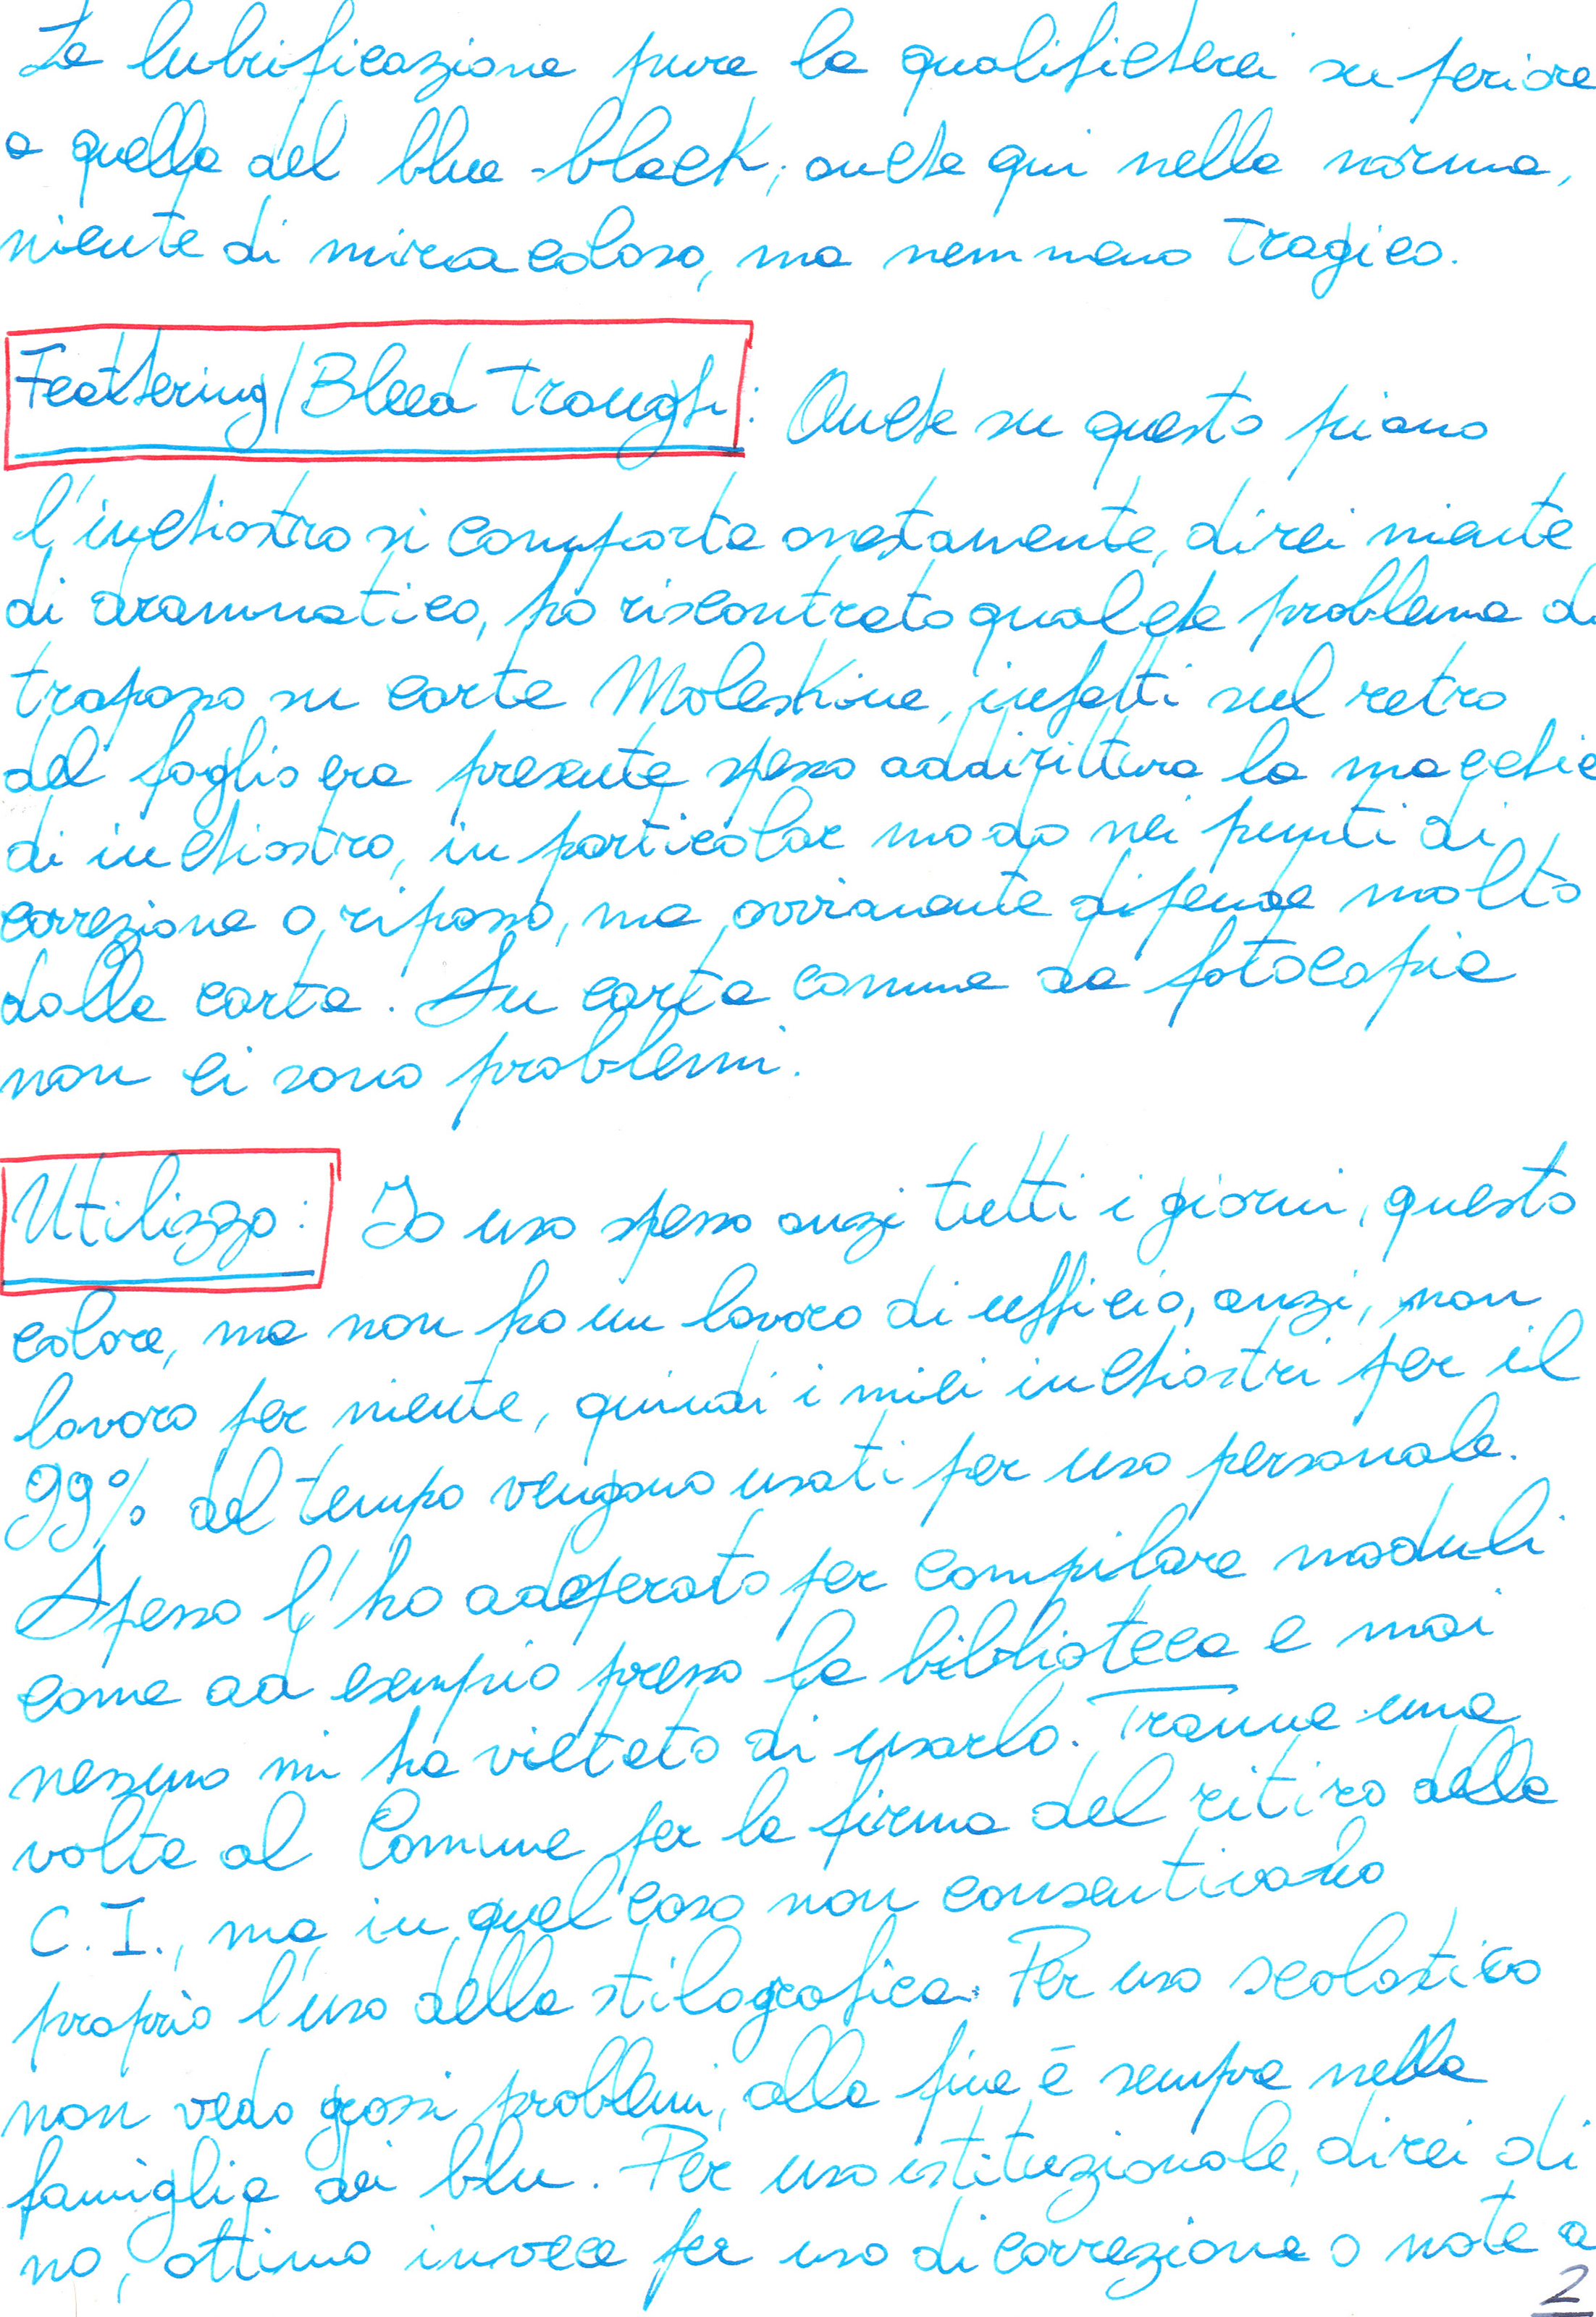 La lubrificazione pure la qualificherei superiore
a quella del blue-black, anche qui nella norma,
niente di miracoloso, ma nemmeno tragico.
Feathering/Bleed trough: Anche su questo piano
l'inchiostro si comporta onestamente, direi niente
di drammatico, ho riscontrato qualche problema di
trapasso su carte Moleskine, infatti sul retro
del foglio era presente spesso addirittura la macchia
di inchiostro, in particolar modo nei punti di
correzione o ripasso, ma ovviamente dipende molto
dalla carta. Su carta comune da fotocopia
non ci sono problemi.
Utilizzo: Io uso spesso anzi tutti i giorni, questo
colore, ma non ho un lavoro di ufficio, anzi, non
lavoro per niente, quindi i miei inchiostri per il
99% del tempo vengono usati per uso personale.
Spesso l'ho adoperato per compilare moduli
come ad esempio presso la biblioteca e mai
nessuno mi ha vietato di usarlo. Tranne una
volta al Comune per la firma del ritiro della
C.I., ma in quel caso non consentivano
proprio l'uso della stilografica. Per uso scolastico
non vedo grossi problemi, alla fine è sempre nella
famiglia dei blu. Per uso istituzionale, direi di
no, ottimo invece per uso di correzione o note a
2